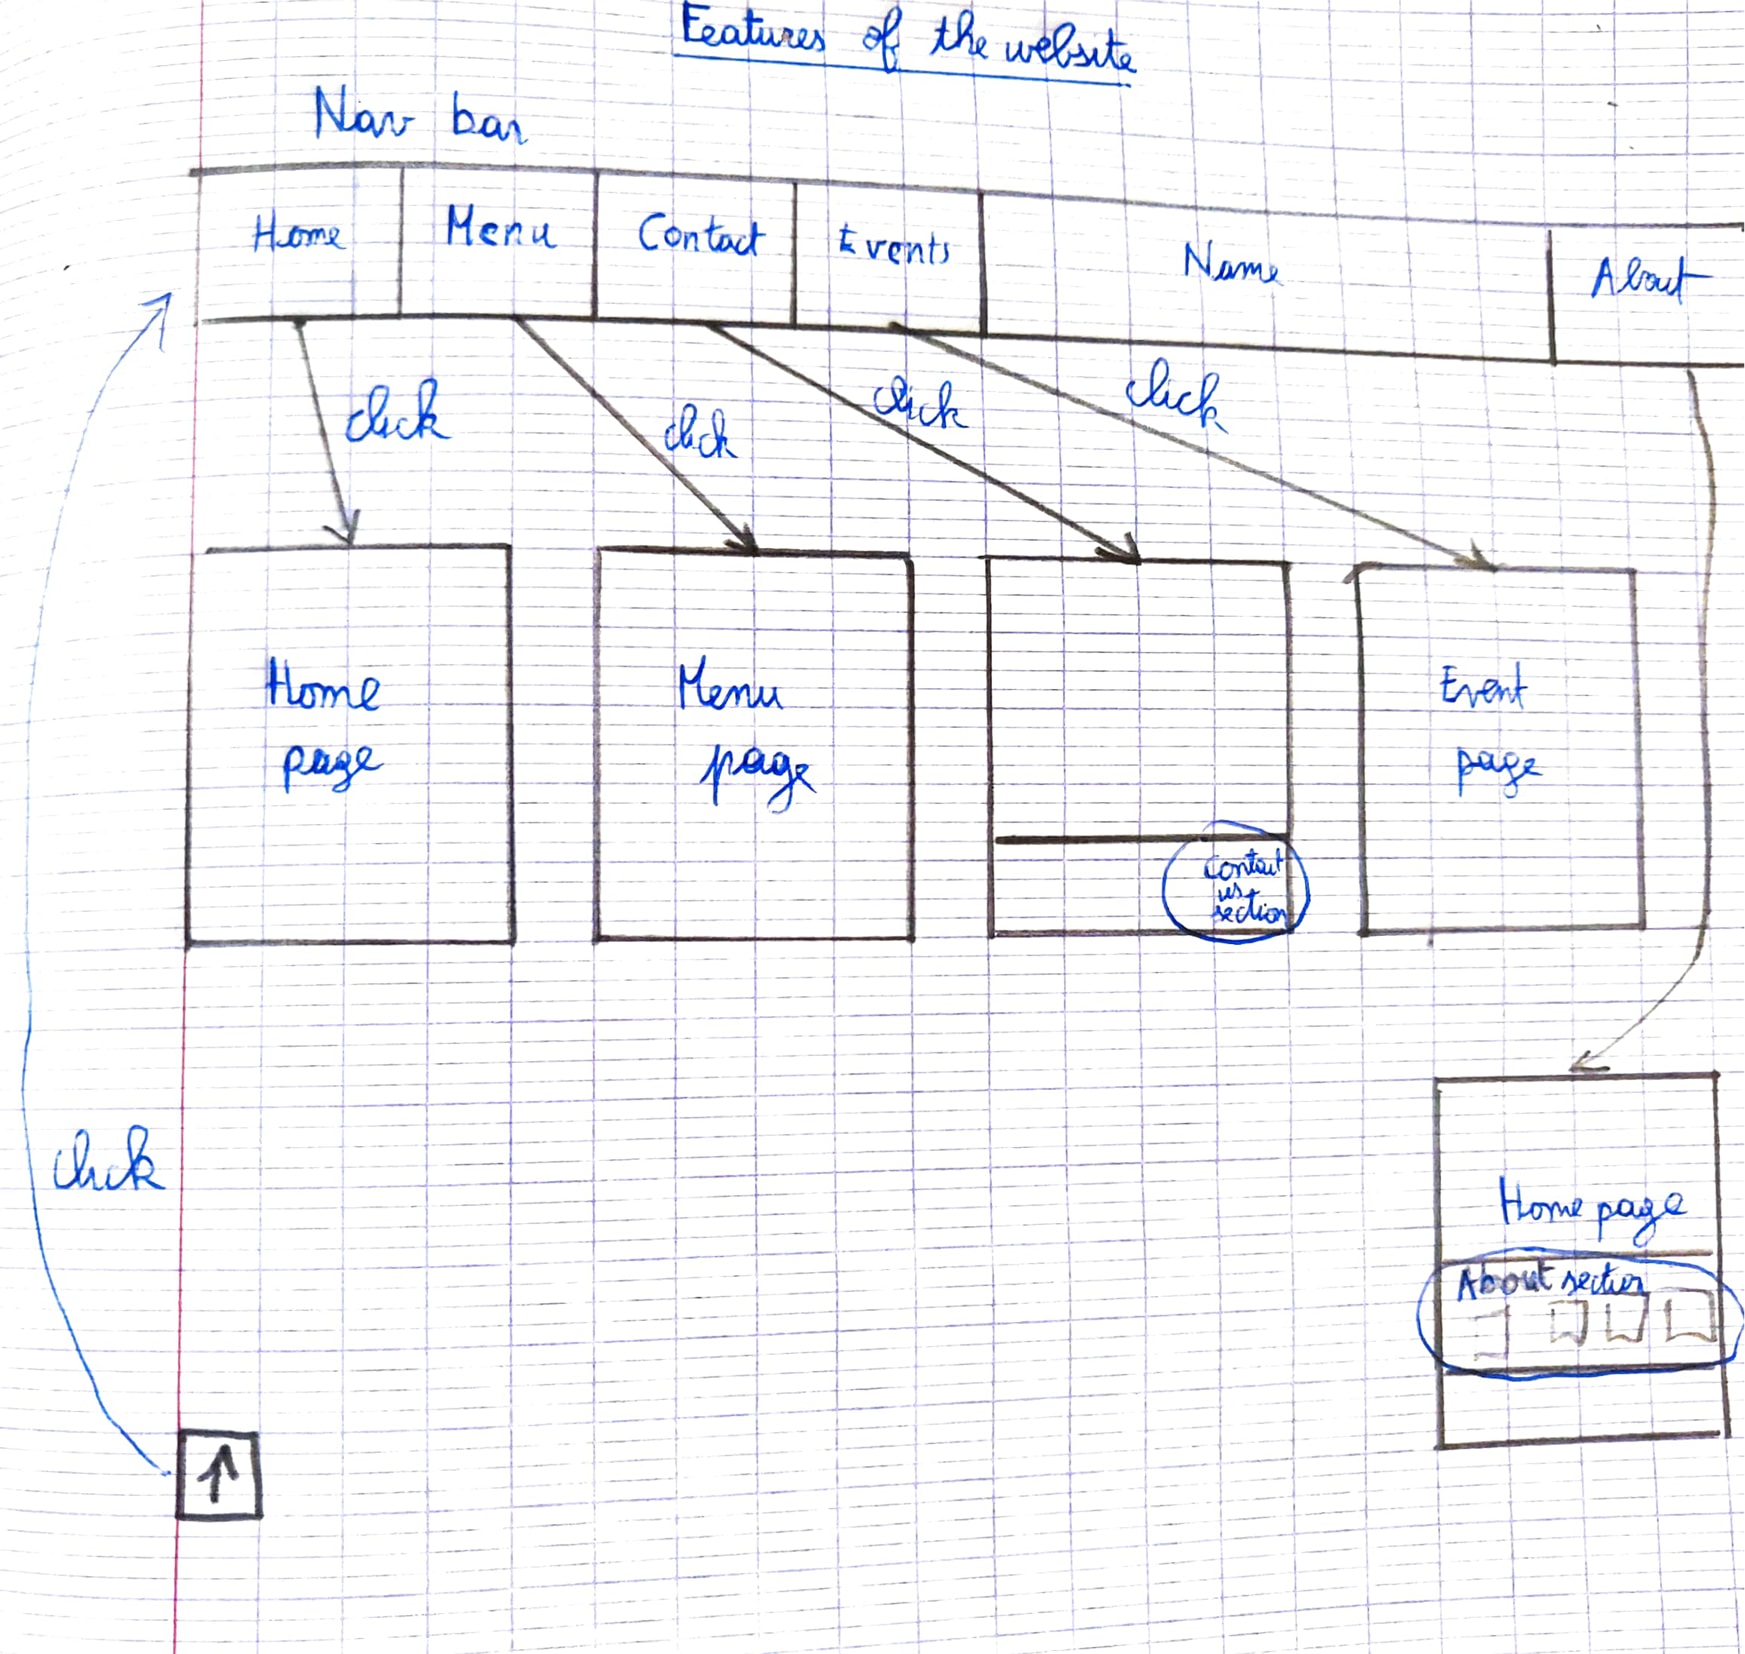 Features of the website
Nav bar
Home Menu Contact Events Name About
click click click click
Home
page
Menu
page
Contact
us
section
Event
page
click
Home page
About section